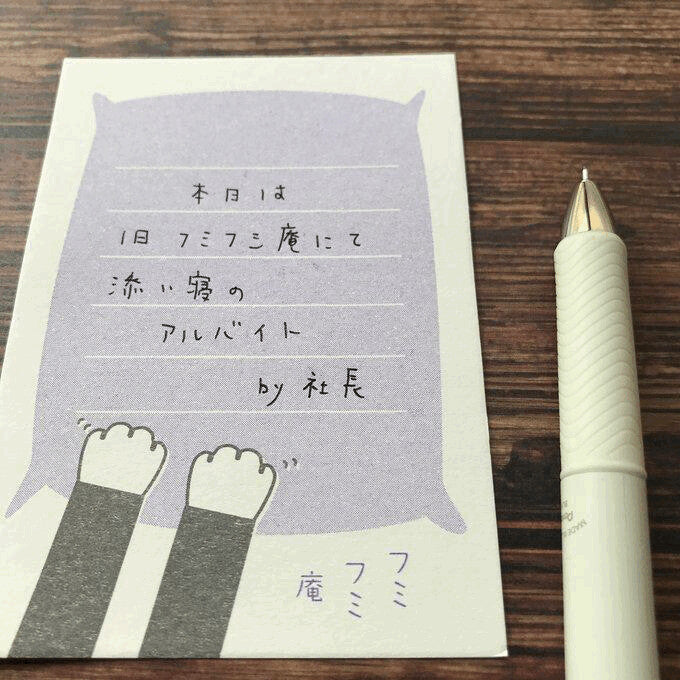 本日は
1日フミフミ庵にて
添い寝の
アルバイト
by 社長
フミ
フミ
庵